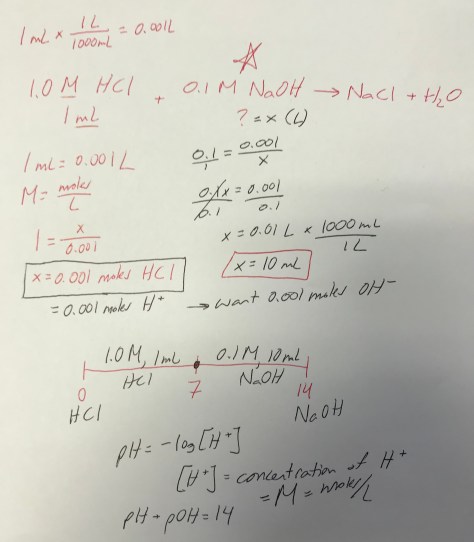 1 mL × 1L/1000mL = 0.001L
1.0 M HCl + 0.1 M NaOH → NaCl + H₂O
1 mL
? = x (L)
1 mL = 0.001 L
M = moles/L
1 = x/0.001
x = 0.001 moles HCl
0.1/1 = 0.001/x
0.1x/0.1 = 0.001/0.1
x = 0.01 L × 1000 mL/1L
x = 10 mL
= 0.001 moles H⁺ → want 0.001 moles OH⁻
1.0 M, 1mL 0.1 M, 10mL
HCl NaOH
0 7 14
HCl NaOH
pH = -log[H⁺]
[H⁺] = concentration of H⁺
= M = moles/L
pH + pOH = 14